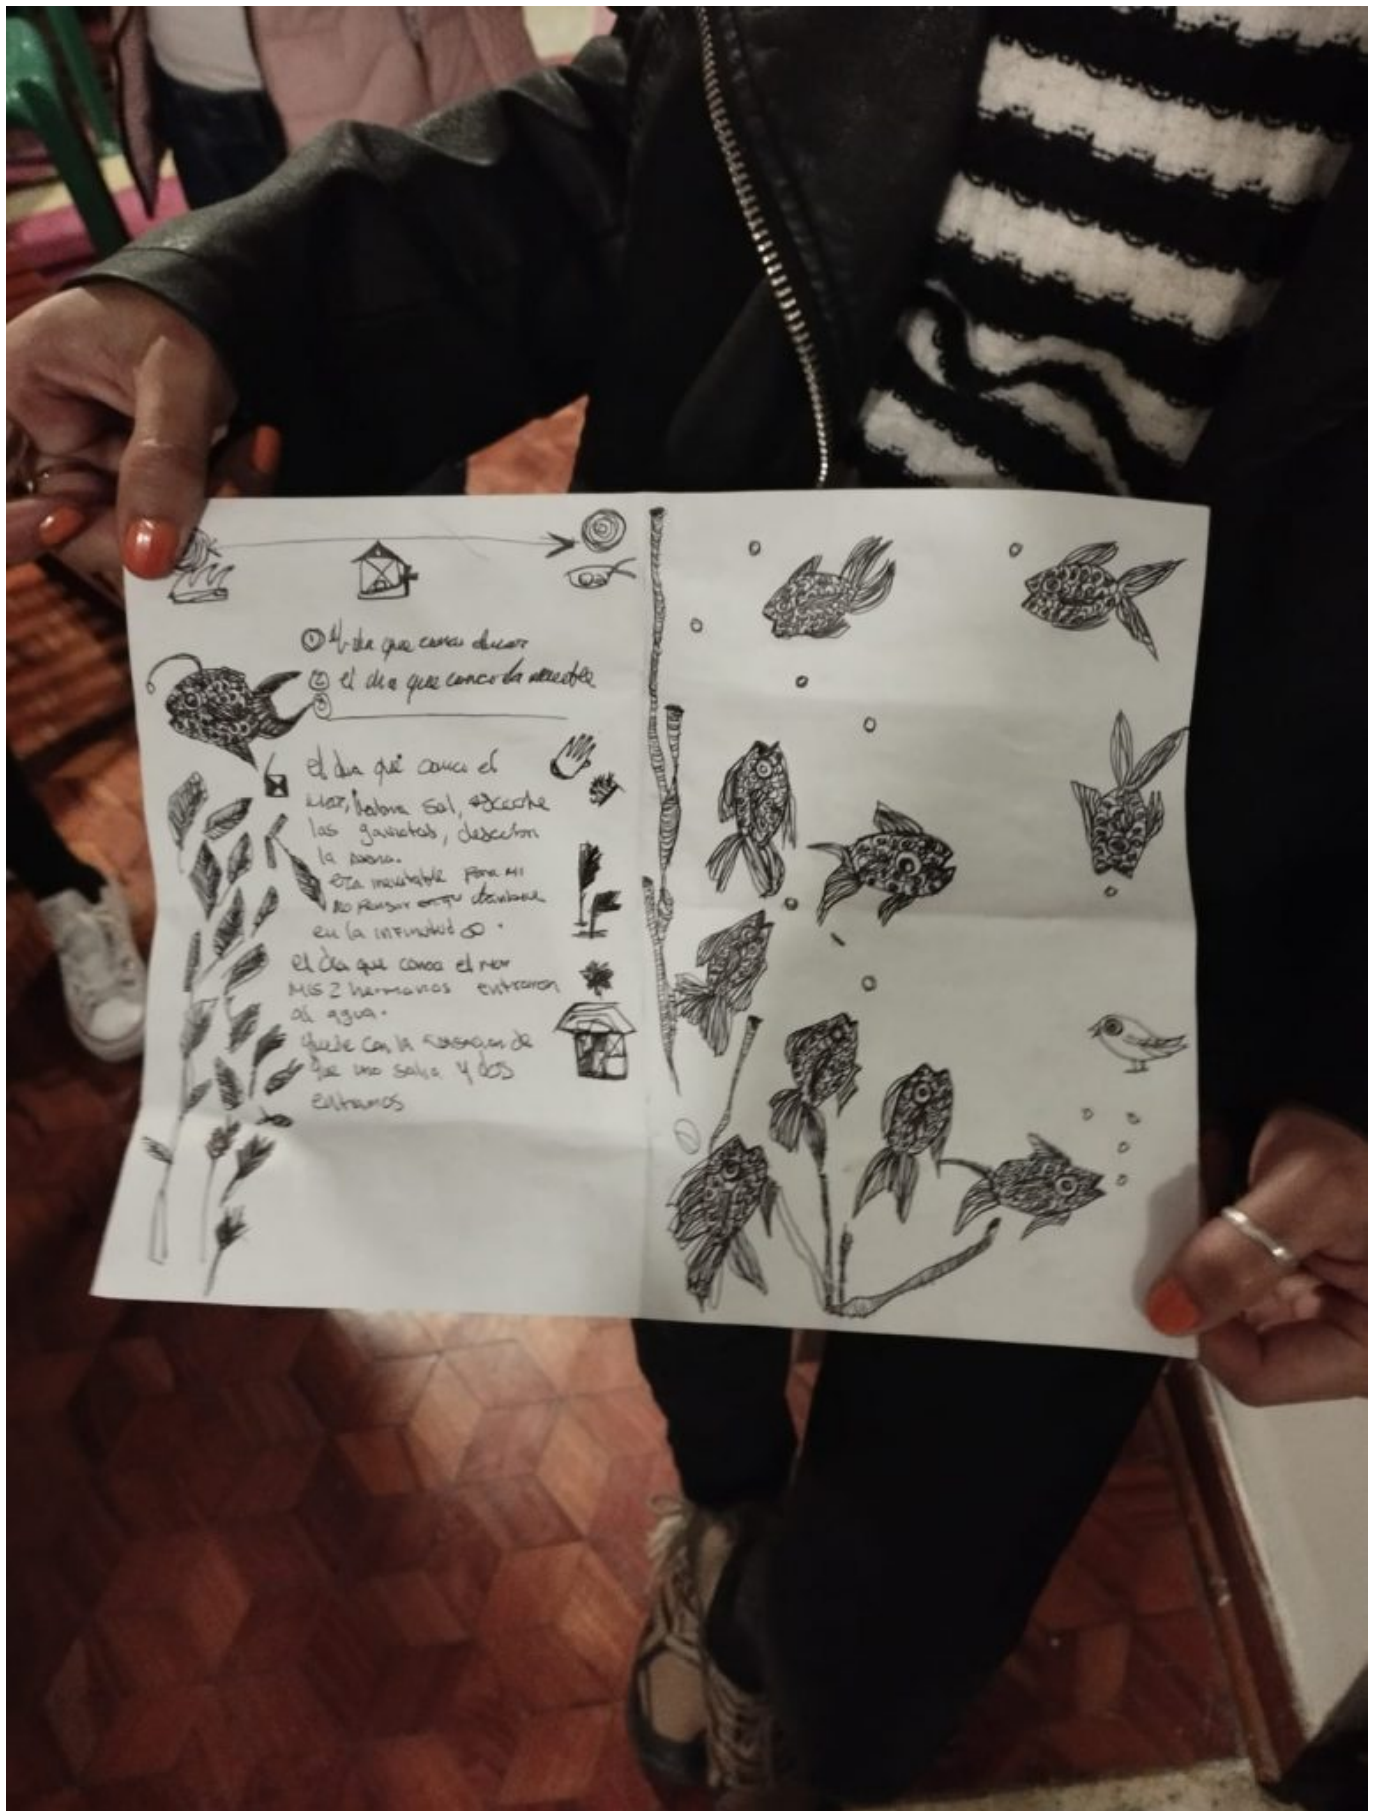 ① El dia que conoci el mar
② el dia que conoci la muerte
③
el dia que conoci el
mar, había sal, escuche
las gaviotas, descubri
la arena.
era inevitable para mi
no pensar en
en la infinitud ∞.
el día que conoci el mar
mis 2 hermanos entraron
al agua.
Quede con la sensacion de
que uno salia y dos
entramos